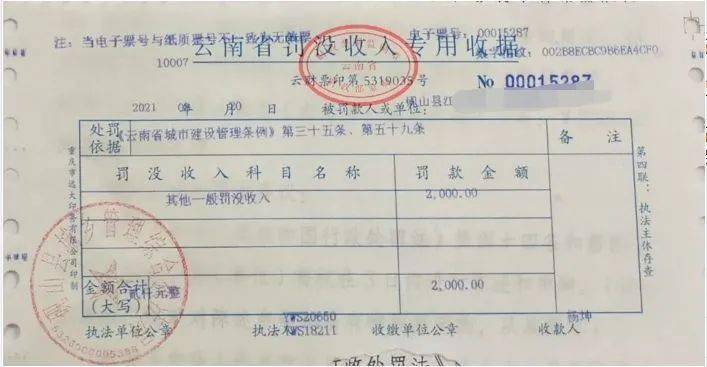 注：当电子票号与纸质票号不一致为无效票
电子票号：00015287
云南省罚没收入专用收据
10007
002B8EC8C9B6EA4CF0
云财票印第5319035号
No 00015287
2021 年 月 20 日 被罚款人或单位：砚山县江
处罚依据 《云南省城市建设管理条例》第三十五条、第五十九条 备注
罚没收入科目名称 罚款金额
其他一般罚没收入 2,000.00
金额合计（大写） 贰仟元整 2,000.00
执法单位公章 执法人 YWS20650 YWS18211 收缴单位公章 收款人 杨坤
重庆市远大印务有限公司印制
第四联：执法主体存查
云南省
5326000095386
收处罚法》